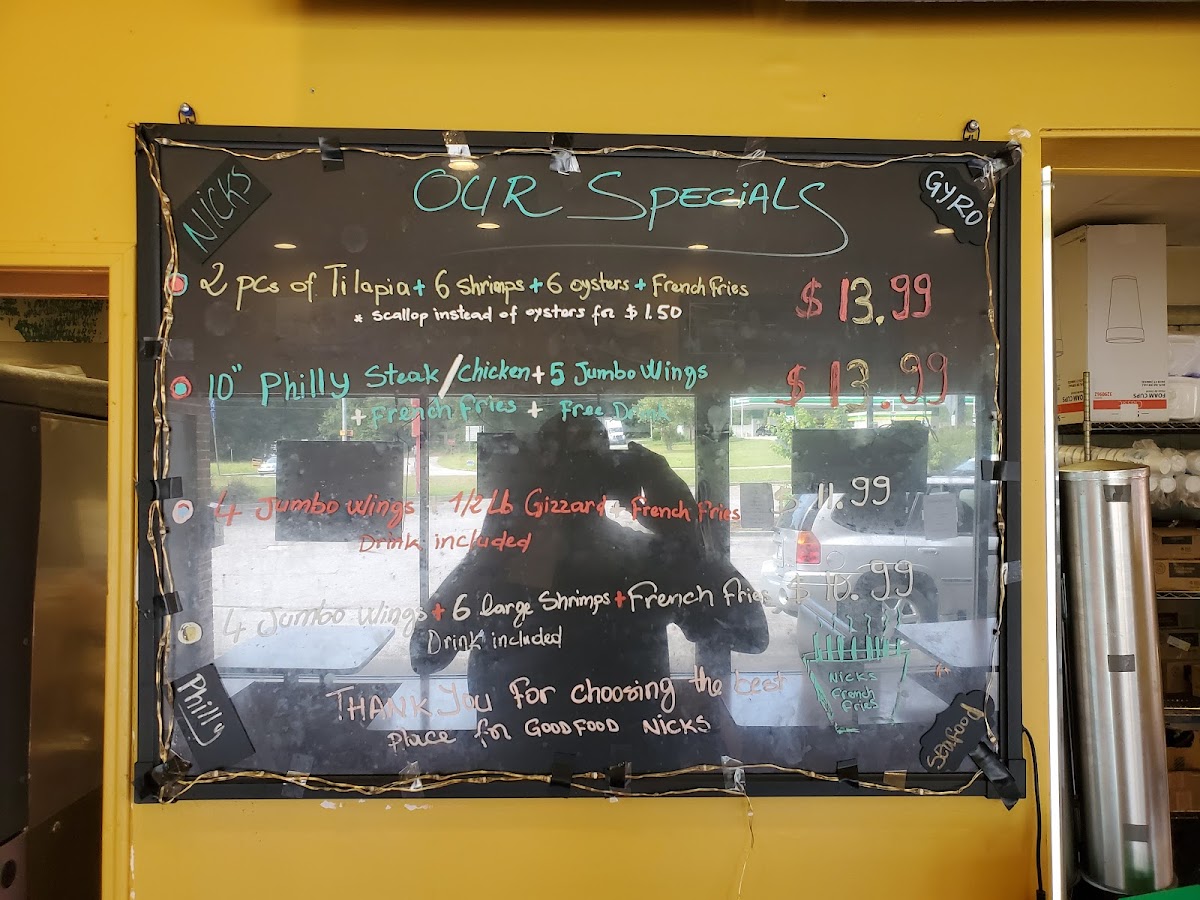 NICKS
OUR SPECIALS
GYRO
2 pcs of Tilapia + 6 shrimps + 6 oysters + French Fries $13.99
* scallop instead of oysters for $1.50
10" Philly Steak/chicken + 5 Jumbo Wings $13.99
+ French Fries + Free Drink
4 Jumbo Wings 1/2 Lb Gizzard + French Fries $11.99
Drink included
4 Jumbo Wings + 6 large Shrimps + French Fries $10.99
Drink included
NICKS
French
Fries
Philly
THANK YOU For choosing the best
Place for GOOD FOOD NICKS
SeaFood
FOAM CUPS